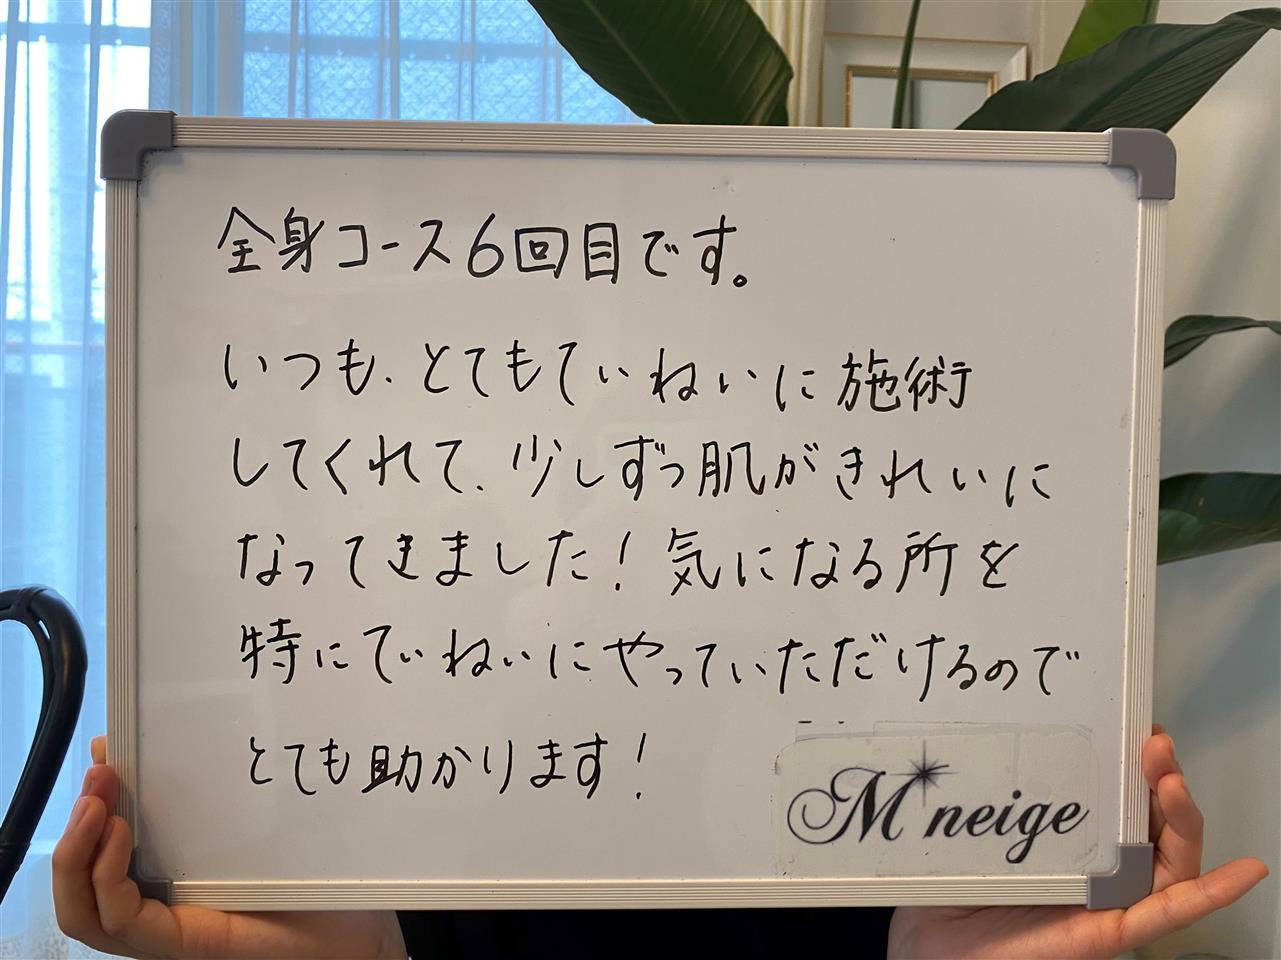 全身コース6回目です。
いつも、とてもていねいに施術
してくれて、少しずつ肌がきれいに
なってきました！気になる所を
特にていねいにやっていただけるので
とても助かります！
M'neige